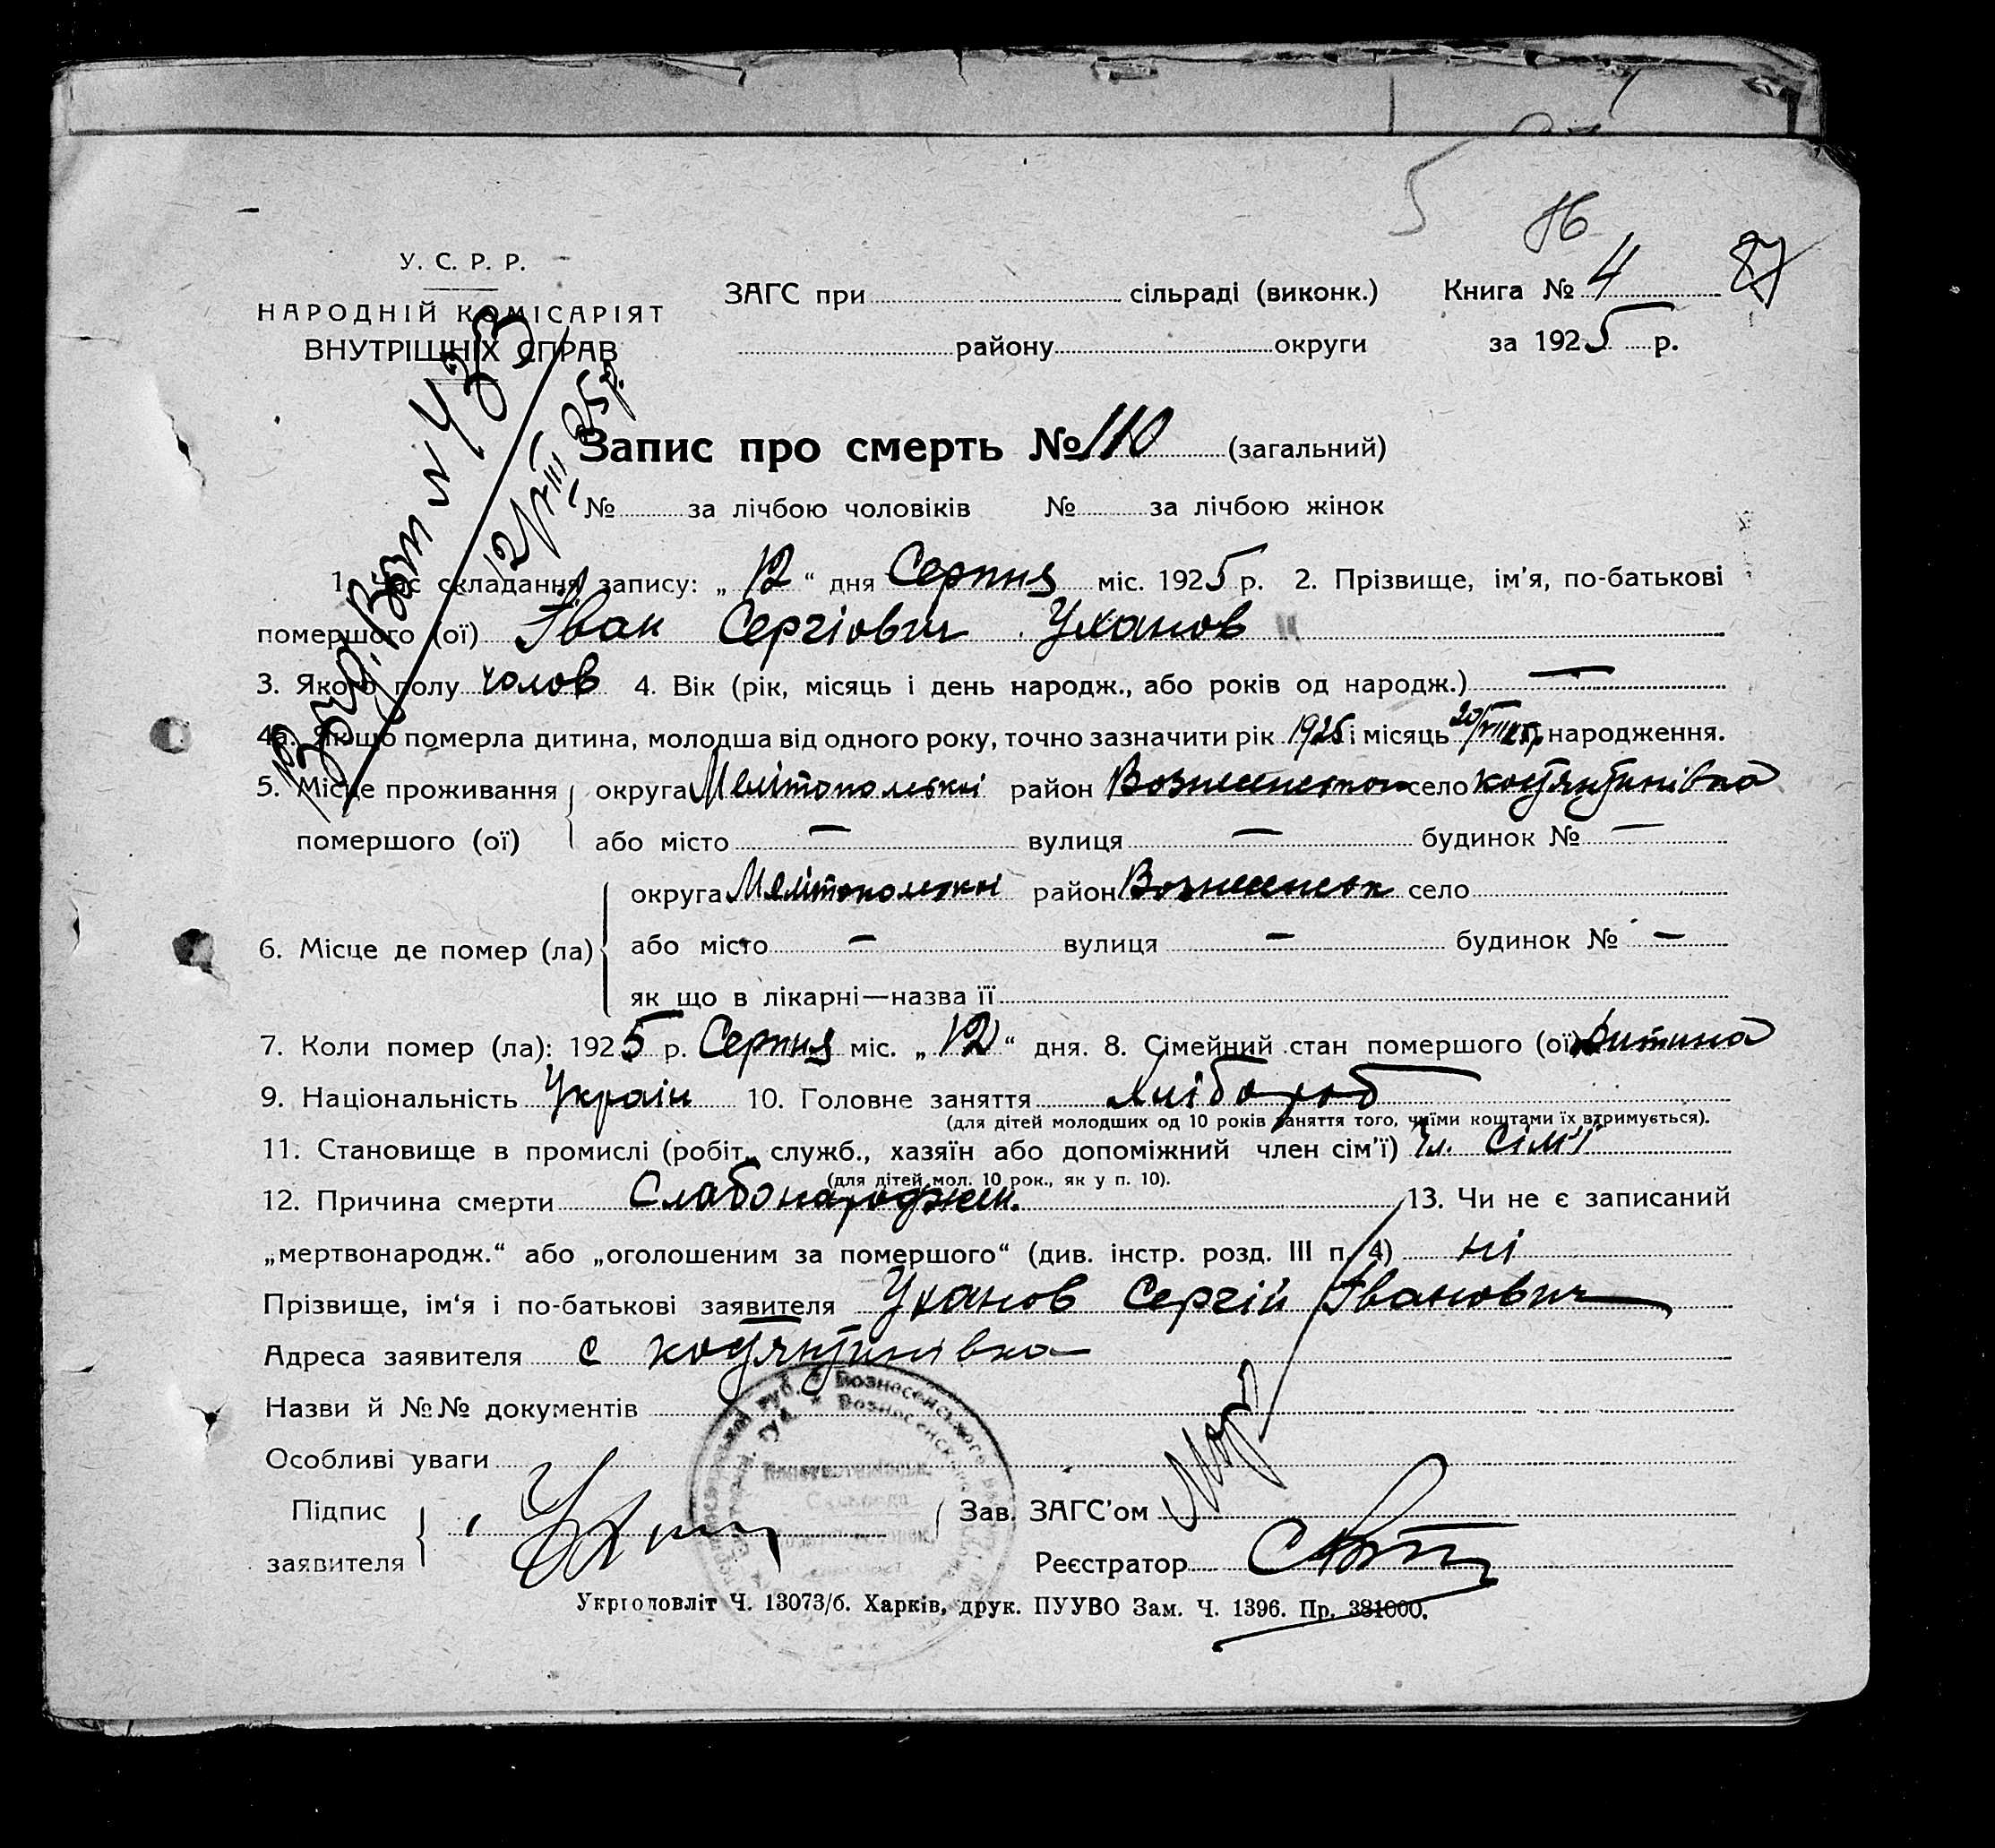 5
86
У. С. Р. Р.
НАРОДНІЙ КОМІСАРІЯТ
ВНУТРІШНІХ СПРАВ
ЗАГС при сільраді (виконк.) Книга № 4 87
району округи за 1925 р.
Запис про смерть № 110 (загальний)
№ за лічбою чоловіків № за лічбою жінок
1. Час складання запису: „ 12 “ дня Серпня міс. 1925 р. 2. Прізвище, ім'я, по-батькові
помершого (ої) Іван Сергіович Уханов
3. Якого полу чолов 4. Вік (рік, місяць і день народж., або років од народж.) —
4а. Якщо померла дитина, молодша від одного року, точно зазначити рік 1925 і місяць народження.
5. Місце проживання округа Мелітопольскі район село
помершого (ої) або місто — вулиця — будинок № —
округа Мелітопольскі район Вознесенськ село
6. Місце де помер (ла) або місто — вулиця — будинок № —
як що в лікарні—назва її
7. Коли помер (ла): 1925 р. Серпня міс. „ 12 “ дня. 8. Сімейний стан помершого (ої) Дитина
9. Національність Україн 10. Головне заняття хлібороб
(для дітей молодших од 10 років заняття того, чиїми коштами їх втримується).
11. Становище в промислі (робіт., служб., хазяїн або допоміжний член сім'ї) чл. сім'ї
(для дітей мол. 10 рок., як у п. 10).
12. Причина смерти Слабонароджен. 13. Чи не є записаний
„мертвонародж.“ або „оголошеним за помершого“ (див. інстр. розд. III п. 4) ні
Прізвище, ім'я і по-батькові заявителя Уханов Сергій Іванович
Адреса заявителя с
Назви й №№ документів
Особливі уваги
Підпис
заявителя
Зав. ЗАГС'ом
Реєстратор
Укрголовліт Ч. 13073/б. Харків, друк. ПУУВО Зам. Ч. 1396. Пр. 381000.